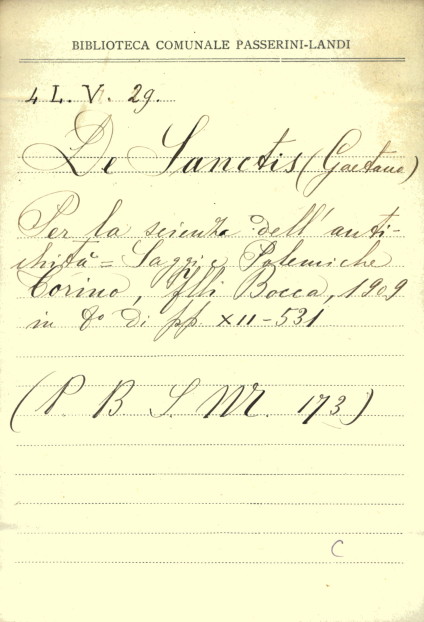 BIBLIOTECA COMUNALE PASSERINI-LANDI
4 L. V. 29.
De Sanctis (Gaetano)
Per la scienza dell'anti-
chità = Saggi e Polemiche
Torino, flli Bocca, 1909
in 8º di pp. XII-531
(P. B. S. M. 173)
C